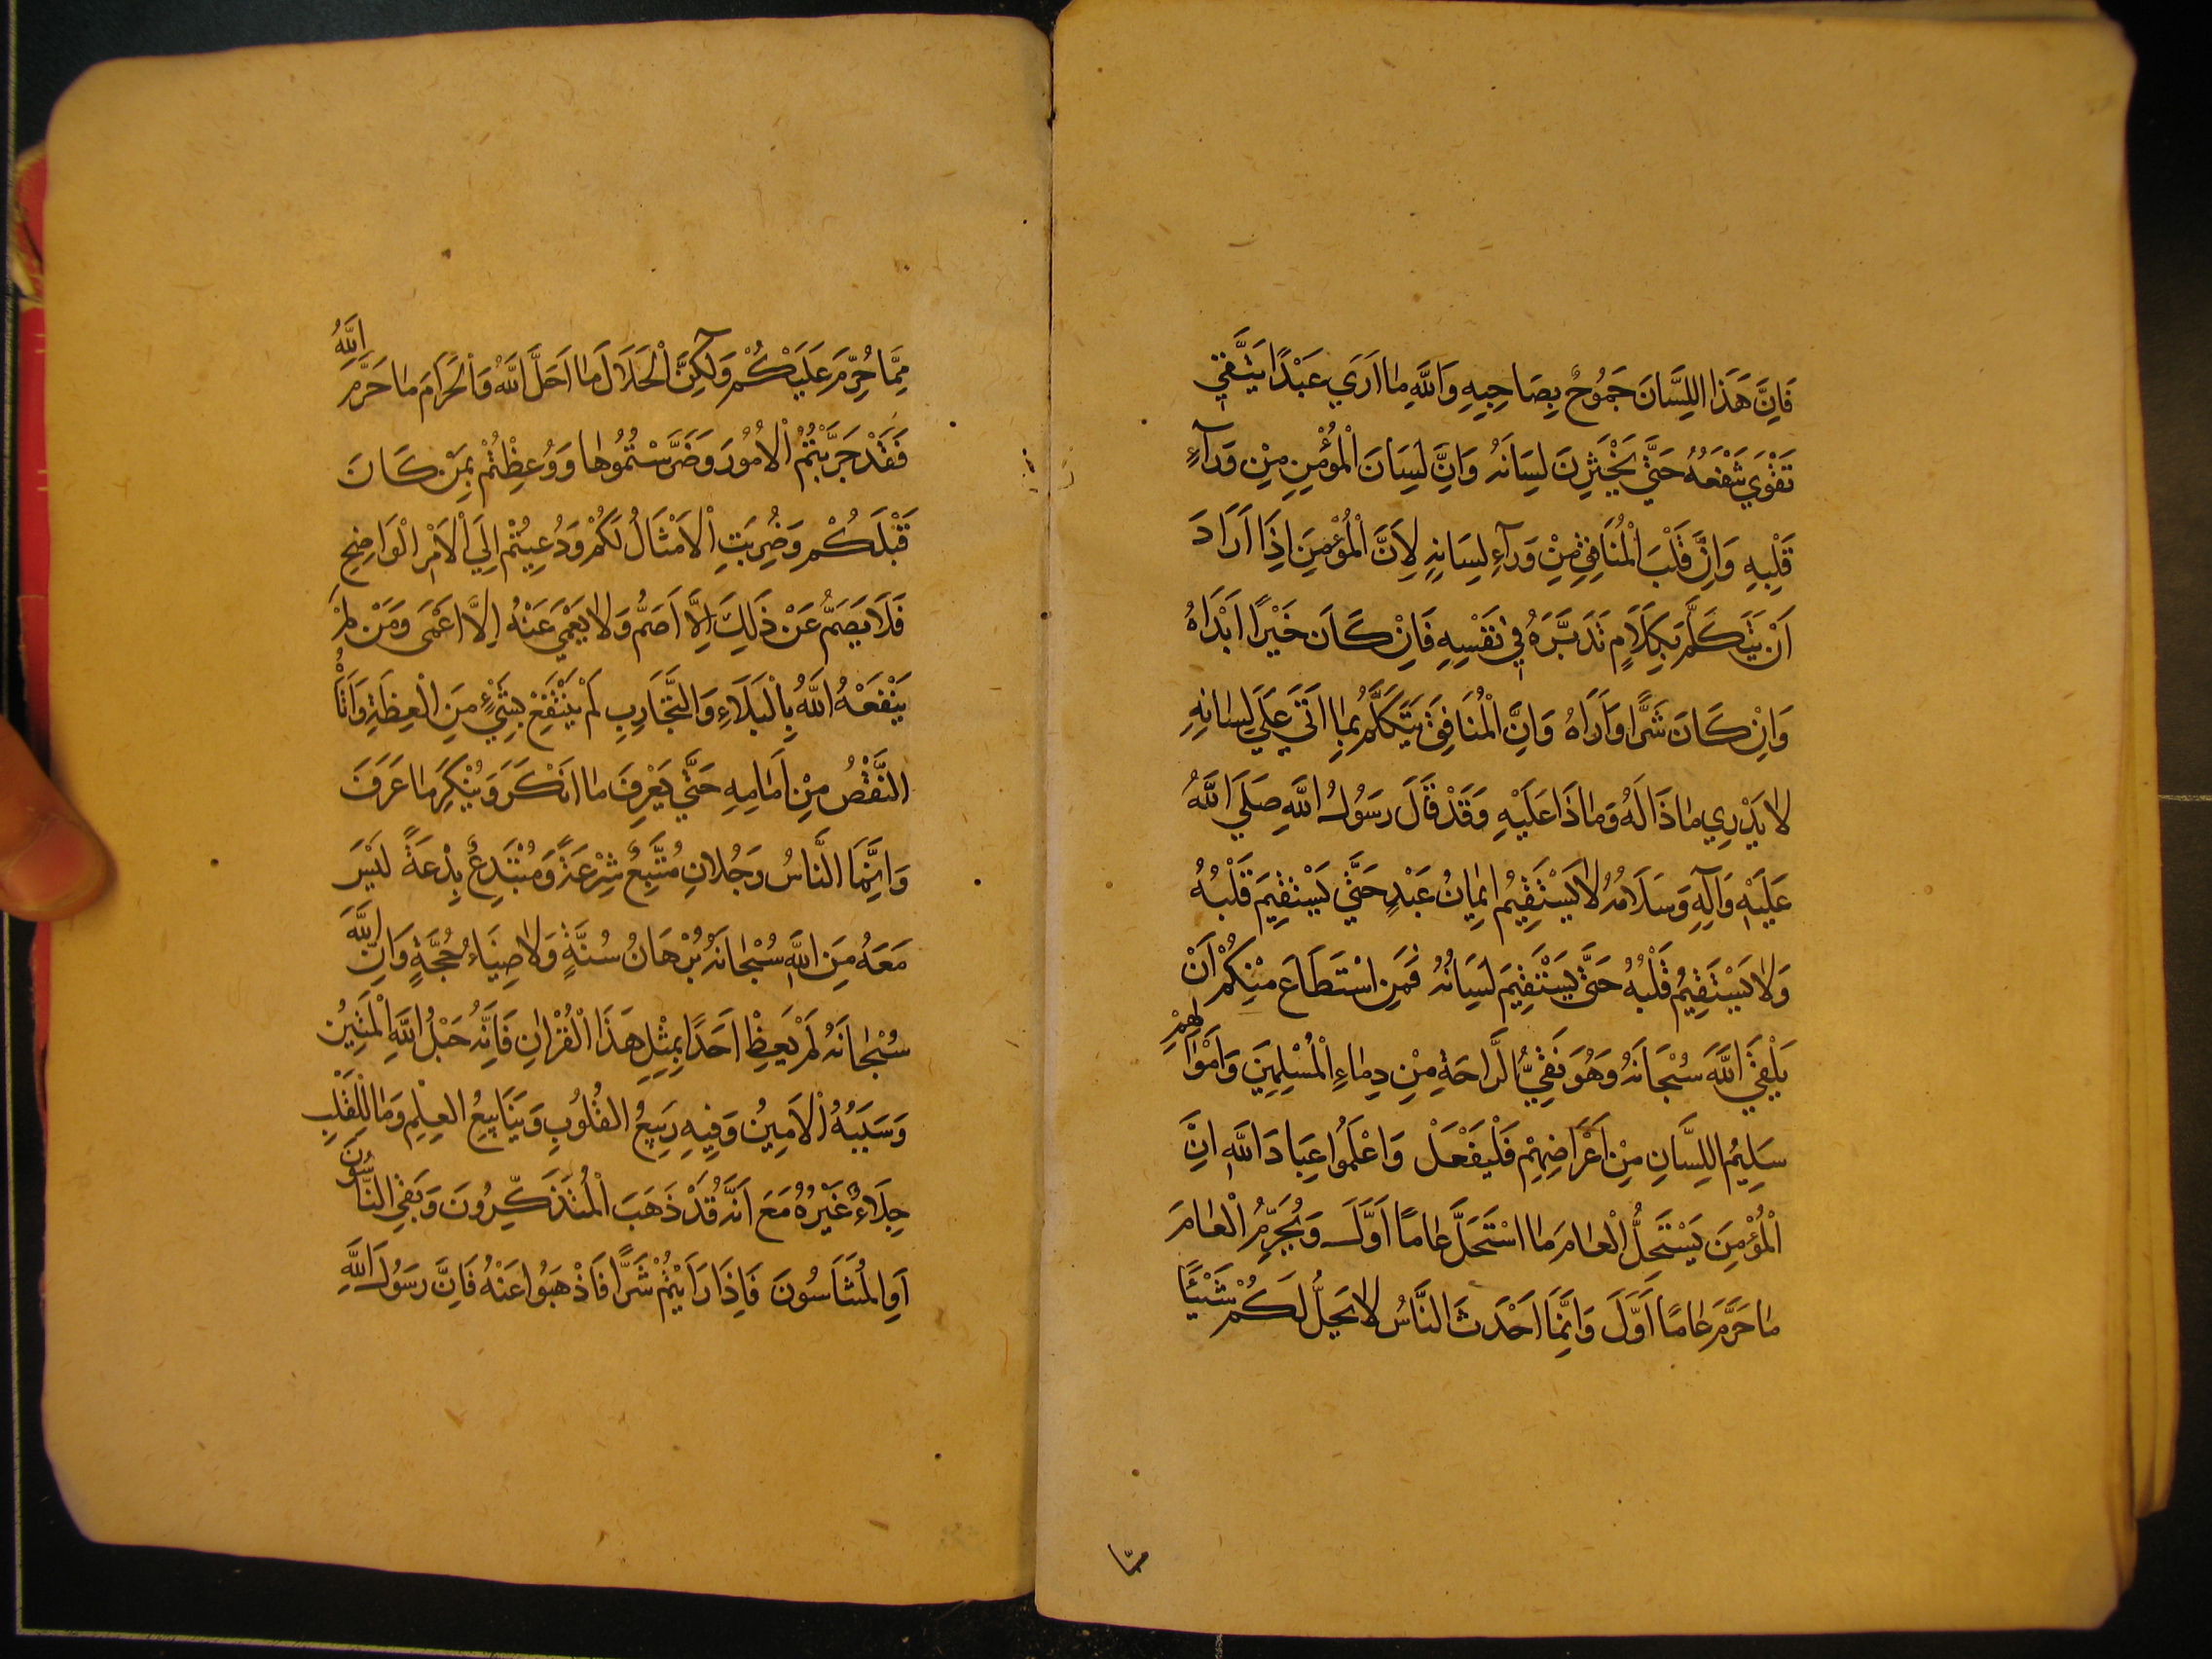 فَاِنَّ هَذَا اللِسَّانَ جَمُوحٌ بِصَاحِبِهِ وَاللَّهِ مٰا اَرَي عَبْدًا يَتَّقِي
تَقْوَي تَنْفَعُهُ حَتَّي يَخْتَزِنَ لِسَانَهُ وَاِنَّ لِسَانَ الْمُؤْمِنِ مِنْ وَرَآءِ
قَلْبِهِ وَاِنَّ قَلْبَ الْمُنَافِقِ مِنْ وَرَآءِ لِسَانِهِ لِاَنَّ الْمُؤْمِنَ اِذَا اَرَادَ
اَنْ يَتَكَلَّمَ بِكَلَامٍ تَدَبَّرَهُ فِي نَفْسِهِ فَاِنْ كَانَ خَيْرًا اَبْدَاهُ
وَاِنْ كَانَ شَرًّا وَارَاهُ وَاِنَّ الْمُنَافِقَ يَتَكَلَّمُ بِمٰا اَتَي عَلَي لِسٰانِهِ
لاٰ يَدْرِي مٰاذَا لَهُ وَمٰاذَا عَلَيْهِ وَقَدْ قَالَ رَسُولُ اللَّهِ صَلَي اللَّهُ
عَلَيْهِ وَآلِهِ وَسَلَامُهُ لاٰ يَسْتَقِيمُ اِيمٰانُ عَبْدٍ حَتَّي يَسْتَقِيمَ قَلْبُهُ
وَلاٰ يَسْتَقِيمُ قَلْبُهُ حَتَّي يَسْتَقِيمَ لِسَانُهُ فَمَنِ اسْتَطَاعَ مِنْكُمْ اَنْ
يَلْقَي اللَّهَ سُبْحَانَهُ وَهُوَ نَقِيُّ الرَّاحَةِ مِنْ دِمٰاءِ الْمُسْلِمِينَ وَاَمْوَالِهِمْ
سَلِيمُ اللِسَّانِ مِنْ اَعْرَاضِهِمْ فَلْيَفْعَلْ وَاعْلَمُوا عِبَادَ اللَّهِ اِنَّ
الْمُؤْمِنَ يَسْتَحِلُّ الْعٰامَ مٰا اسْتَحَلَّ عٰامًا اَوَّلَ وَيُحَرِّمُ الْعٰامَ
مٰا حَرَّمَ عٰامًا اَوَّلَ وَاِنَّمَا اَحْدَثَ النَّاسُ لاٰ يَحِلُّ لَكُمْ شَيْئًا
مِمّا
مِمَّا حُرِّمَ عَلَيْكُمْ وَلٰكِنَّ الْحَلَالَ مٰا اَحَلَّ اللَّهُ وَالْحَرَامَ مٰا حَرَّمَ اللَّهُ
فَقَدْ جَرَّبْتُمُ الْاُمُورَ وَضَرَّسْتُمُوهٰا وَوُعِظْتُمْ بِمَنْ كَانَ
قَبْلَكُمْ وَضُرِبَتِ الْاَمْثَالُ لَكُمْ وَدُعِيتُمْ اِلَي الْاَمْرِ الْوَاضِحِ
فَلَا يَصَمُّ عَنْ ذَلِكَ اِلَّا اَصَمُّ وَلاٰ يَعْمَي عَنْهُ اِلَّا اَعْمَي وَمَنْ لَمْ
يَنْفَعْهُ اللَّهُ بِالْبَلَاءِ وَالتَّجَارِبِ لَمْ يَنْتَفِعْ بِشَيْءٍ مِنَ الْعِظَةِ وَاَتَاهُ
النَّقْصُ مِنْ اَمٰامِهِ حَتَّي يَعْرِفَ مٰا اَنْكَرَ وَيُنْكِرَ مٰا عَرَفَ
وَاِنَّمَا النَّاسُ رَجُلانِ مُتَّبِعٌ شِرْعَةً وَمُبْتَدِعٌ بِدْعَةً لَيْسَ
مَعَهُ مِنَ اللَّهِ سُبْحٰانَهُ بُرْهَانُ سُنَّةٍ وَلاٰ ضِيَاءُ حُجَّةٍ وَاِنَّ اللَّهَ
سُبْحٰانَهُ لَمْ يَعِظْ اَحَدًا بِمِثْلِ هَذَا الْقُرْاٰنِ فَاِنَّهُ حَبْلُ اللَّهِ الْمَتِينُ
وَسَبَبُهُ الْاَمِينُ وَفِيهِ رَبِيعُ الْقُلُوبِ وَيَنَابِيعُ الْعِلْمِ وَمٰا لِلْقَلْبِ
جِلَاءٌ غَيْرُهُ مَعَ اَنَّهُ قَدْ ذَهَبَ الْمُتَذَكِّرُونَ وَبَقِيَ النَّاسُونَ
اَوِ الْمُتَنَاسُونَ فَاِذَا رَاَيْتُمْ شَرًّا فَاذْهَبُوا عَنْهُ فَاِنَّ رَسُولَ اللَّهِ